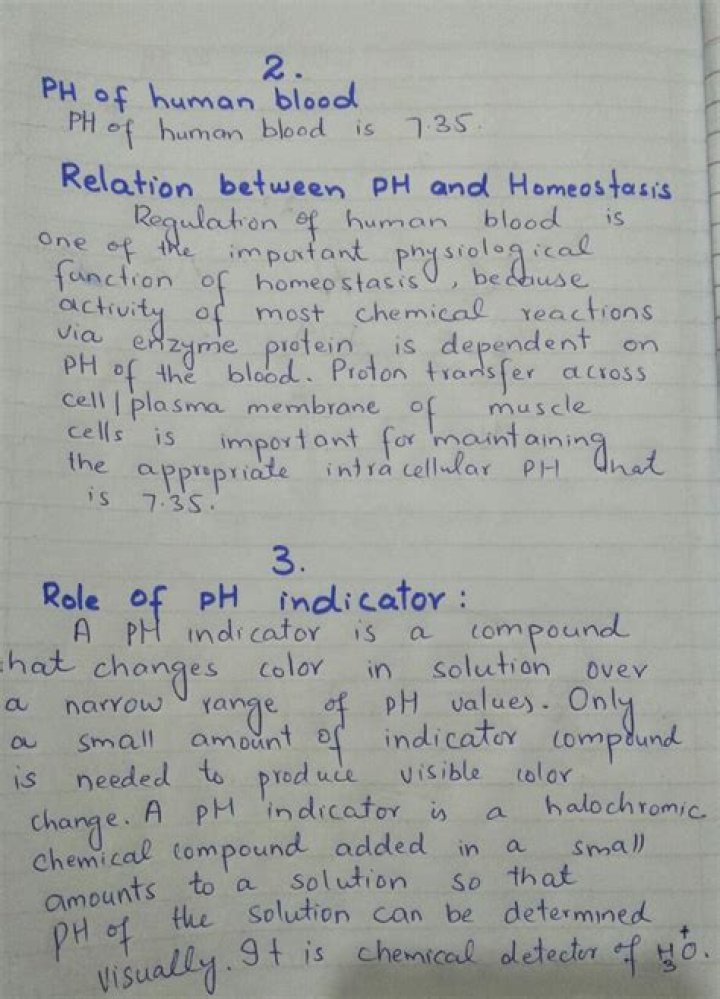 2.
PH of human blood
PH of human blood is 7.35.
Relation between PH and Homeostasis
Regulation of human blood is
one of the important physiological
function of homeostasis, because
activity of most chemical reactions
via enzyme protein is dependent on
PH of the blood. Proton transfer across
cell/plasma membrane of muscle
cells is important for maintaining
the appropriate intracellular PH that
is 7.35.
3.
Role of pH indicator:
A PH indicator is a compound
that changes color in solution over
a narrow range of pH values. Only
a small amount of indicator compound
is needed to produce visible color
change. A pH indicator is a halochromic
chemical compound added in a small
amounts to a solution so that
PH of the solution can be determined
visually. It is chemical detector of H₃O⁺.